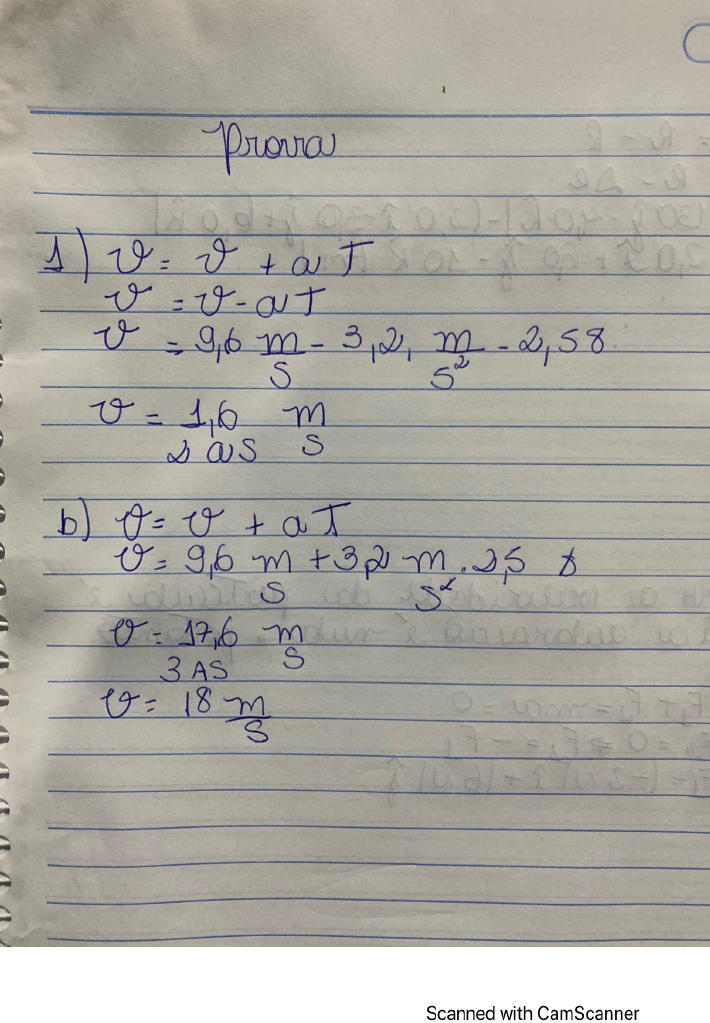 Prova
1) v = v + a T
v = v - a T
v = 9,6 m/s - 3,2, m/s² - 2,58
v = 1,6 m/s
2 as
b) v = v + a T
v = 9,6 m/s + 3,2 m/s² . 2,5 s
v = 17,6 m/s
3 AS
v = 18 m/s
Scanned with CamScanner